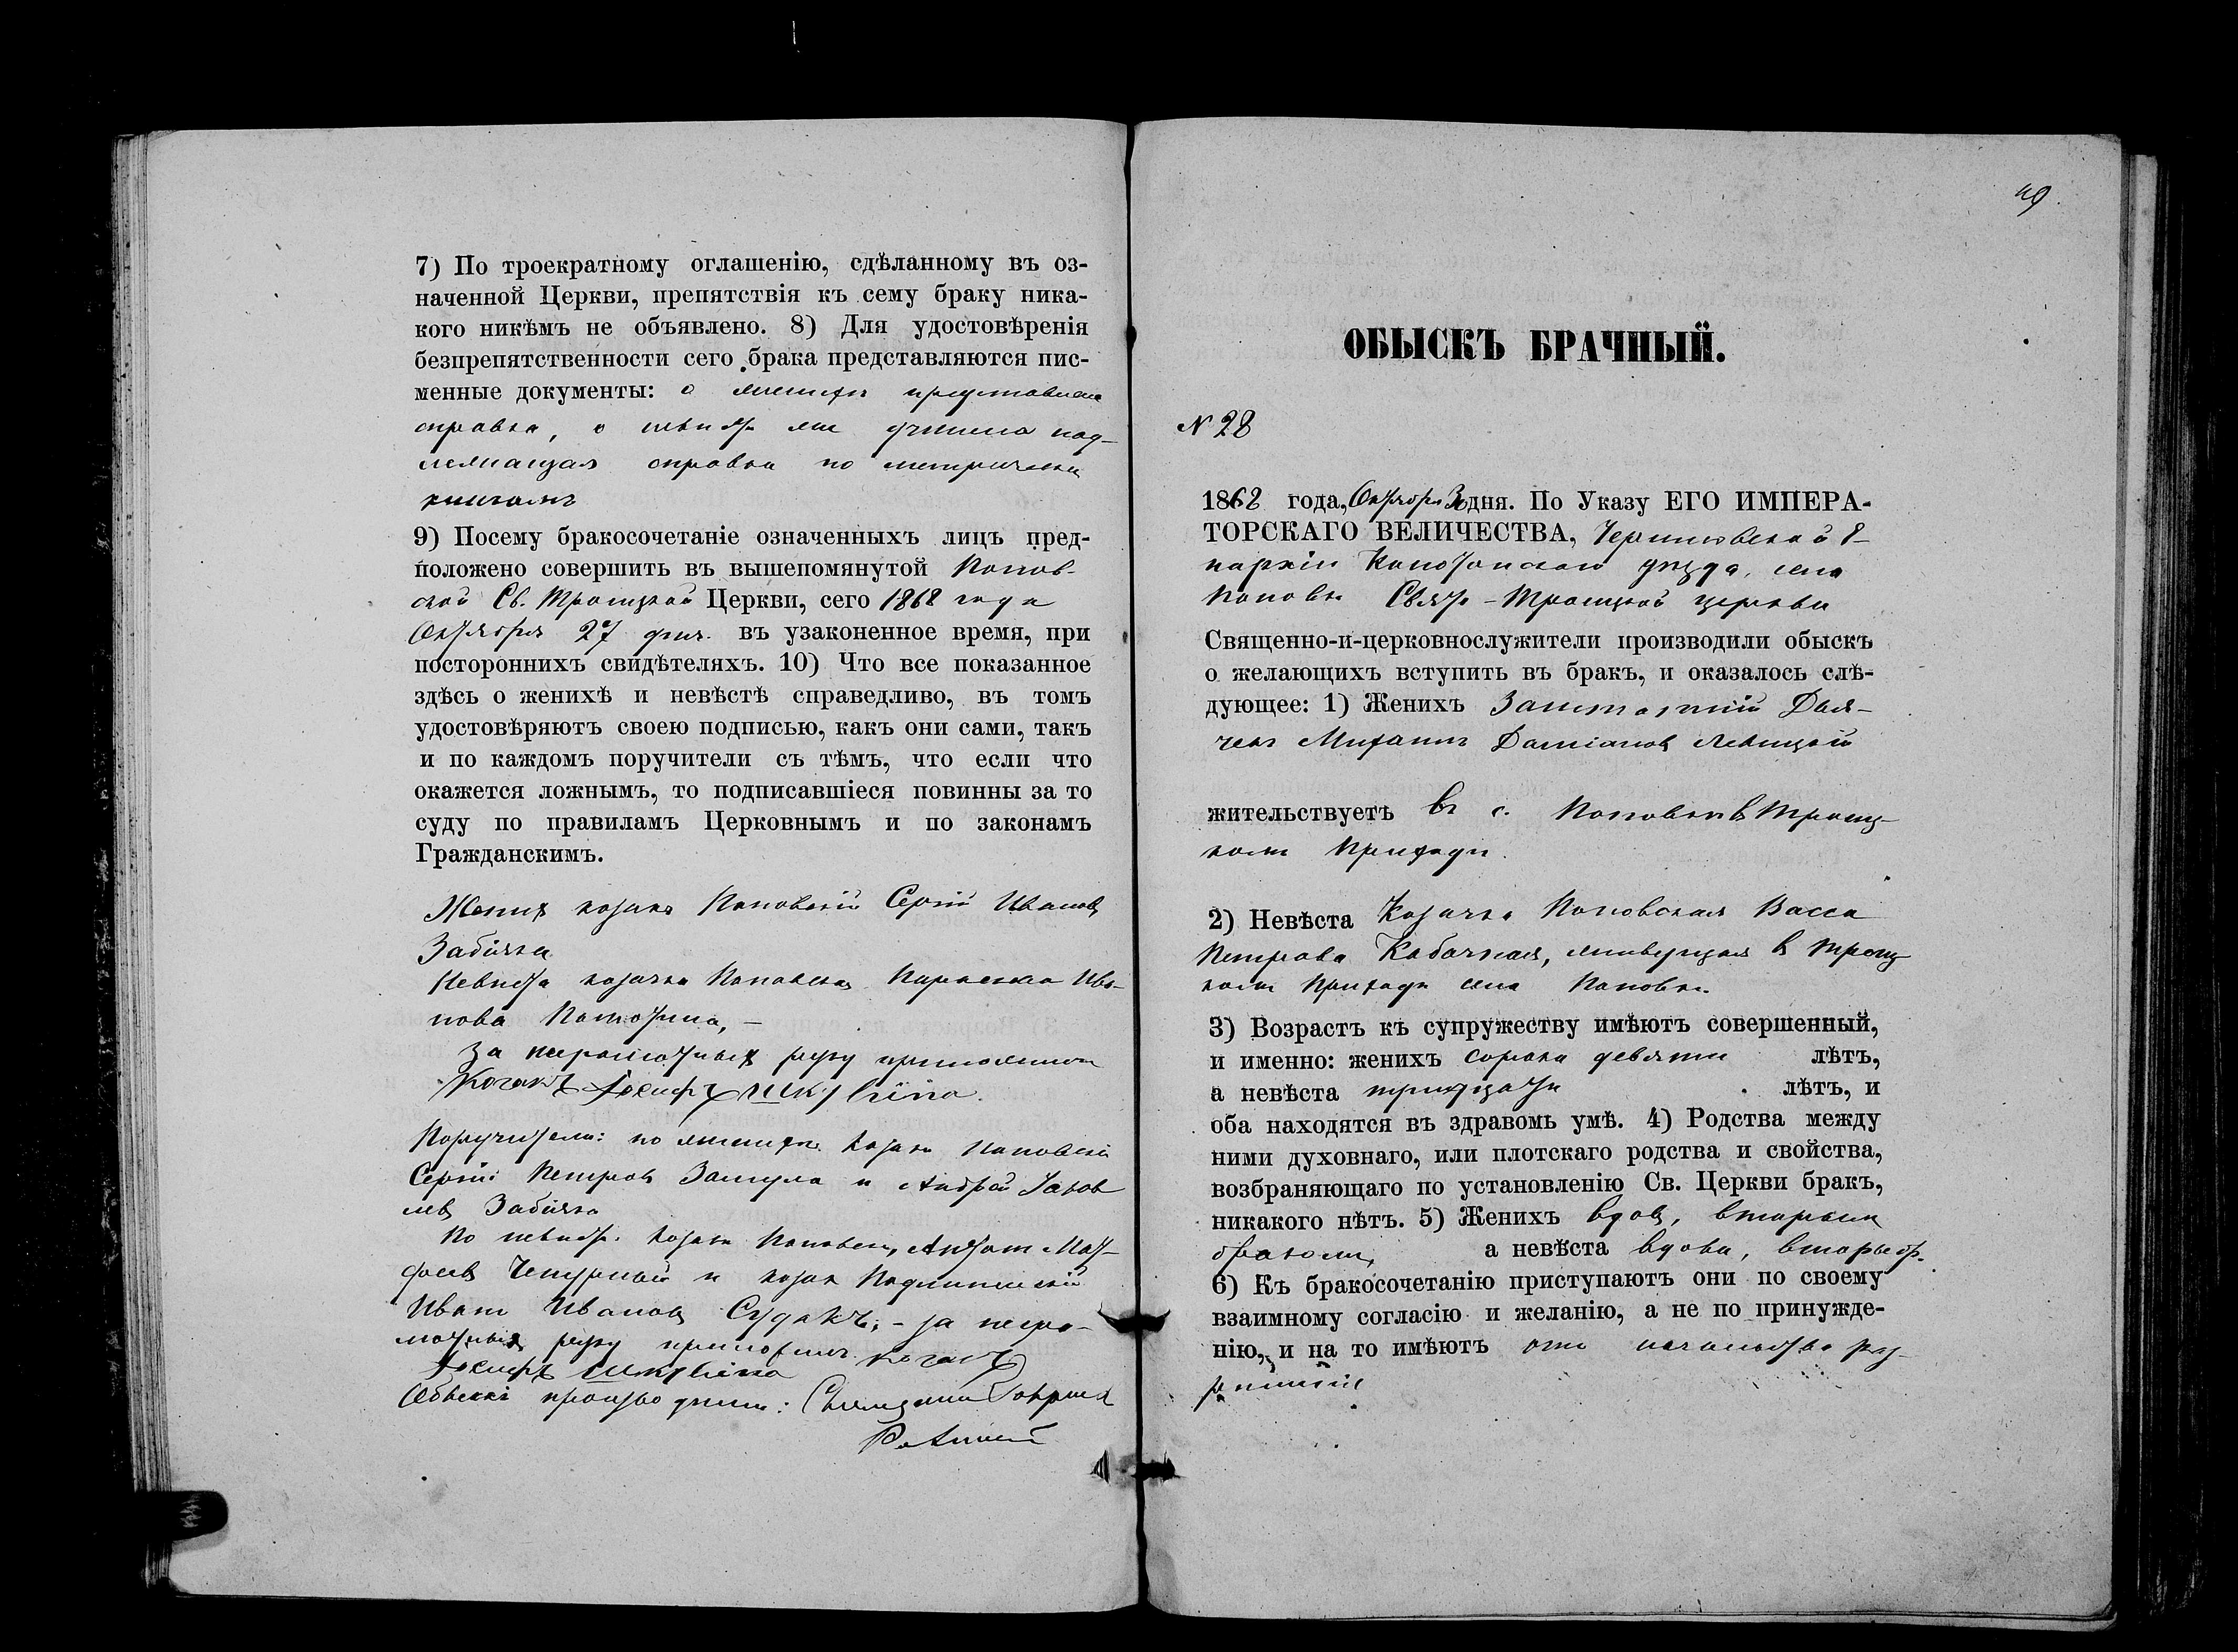 7) По троекратному оглашенію, сдѣланному въ оз-
наченной Церкви, препятствія къ сему браку ника-
кого никѣмъ не объявлено. 8) Для удостовѣренія
безпрепятственности сего брака представляются пис-
менные документы: о женихѣ представлена
справка, о невѣстѣ же учинена над-
лежащая справка по метрически
книгамъ
9) Посему бракосочетаніе означенныхъ лицъ пред-
положено совершить въ вышепомянутой Попов-
ской Св. Троицкой Церкви, сего 1868 года
Октября 27 дня. въ узаконенное время, при
постороннихъ свидѣтеляхъ. 10) Что все показанное
здѣсь о женихѣ и невѣстѣ справедливо, въ томъ
удостовѣряютъ своею подписью, какъ они сами, такъ
и по каждомъ поручители съ тѣмъ, что если что
окажется ложнымъ, то подписавшіеся повинны за то
суду по правиламъ Церковнымъ и по законамъ
Гражданскимъ.
Жених козакъ Поповскій Сергій Иванов
Забіяка
Невѣста козачка Поповская Параскева Ива-
нова
За неграмотных руку приложил
Козакъ Іосифъ Шкурвіна.
Поручители: по женихѣ козаки Поповскіе
Сергій Петров Замула и Андрей Яков
лев Забіяка
По невѣстѣ козаки Поповск. Антон Мат-
феев Чепурный и козак Подлипенскій
Иван Иванов Судакъ; - за негра-
мотных руку приложилъ козакъ
Іосифъ
Обыскъ производили: Священник
49
ОБЫСКЪ БРАЧНЫЙ.
N 28
1868 года, Октября дня. По Указу ЕГО ИМПЕРА-
ТОРСКАГО ВЕЛИЧЕСТВА, Черниговской Е-
пархіи Конотопскаго уѣзда, села
Поповки Свято-Троицкой церкви
Священно-и-церковнослужители производили обыскъ
о желающихъ вступить въ бракъ, и оказалось слѣ-
дующее: 1) Женихъ Заштатный Дья-
чекъ Михаилъ Даміанов Левицкій
жительствуетъ въ с. Поповкѣ в Троиц-
комъ Приходѣ.
2) Невѣста Козачка Поповская Васса
Петрова Кабачная, живущая в Троиц
комъ Приходѣ села Поповки
3) Возрастъ къ супружеству имѣютъ совершенный,
и именно: женихъ сорока девяти лѣтъ,
а невѣста тридцати лѣтъ, и
оба находятся въ здравомь умѣ. 4) Родства между
ними духовнаго, или плотскаго родства и свойства,
возбраняющаго по установленію Св. Церкви бракъ,
никакого нѣтъ. 5) Женихъ вдов, вторым
браком, а невѣста вдова, вторым бр.
6) Къ бракосочетанію приступаютъ они по своему
взаимному согласію и желанію, а не по принужде-
нію, и на то имѣютъ отъ начальства раз-
рѣшеніе